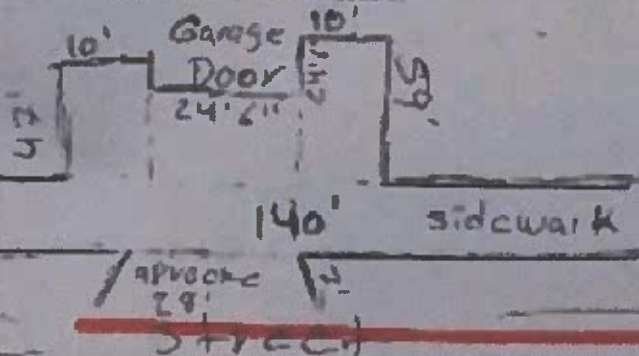 10'
10'
Garage
Door
24'
47'
24' 6"
59'
140'
sidewalk
aproche
28'
Street